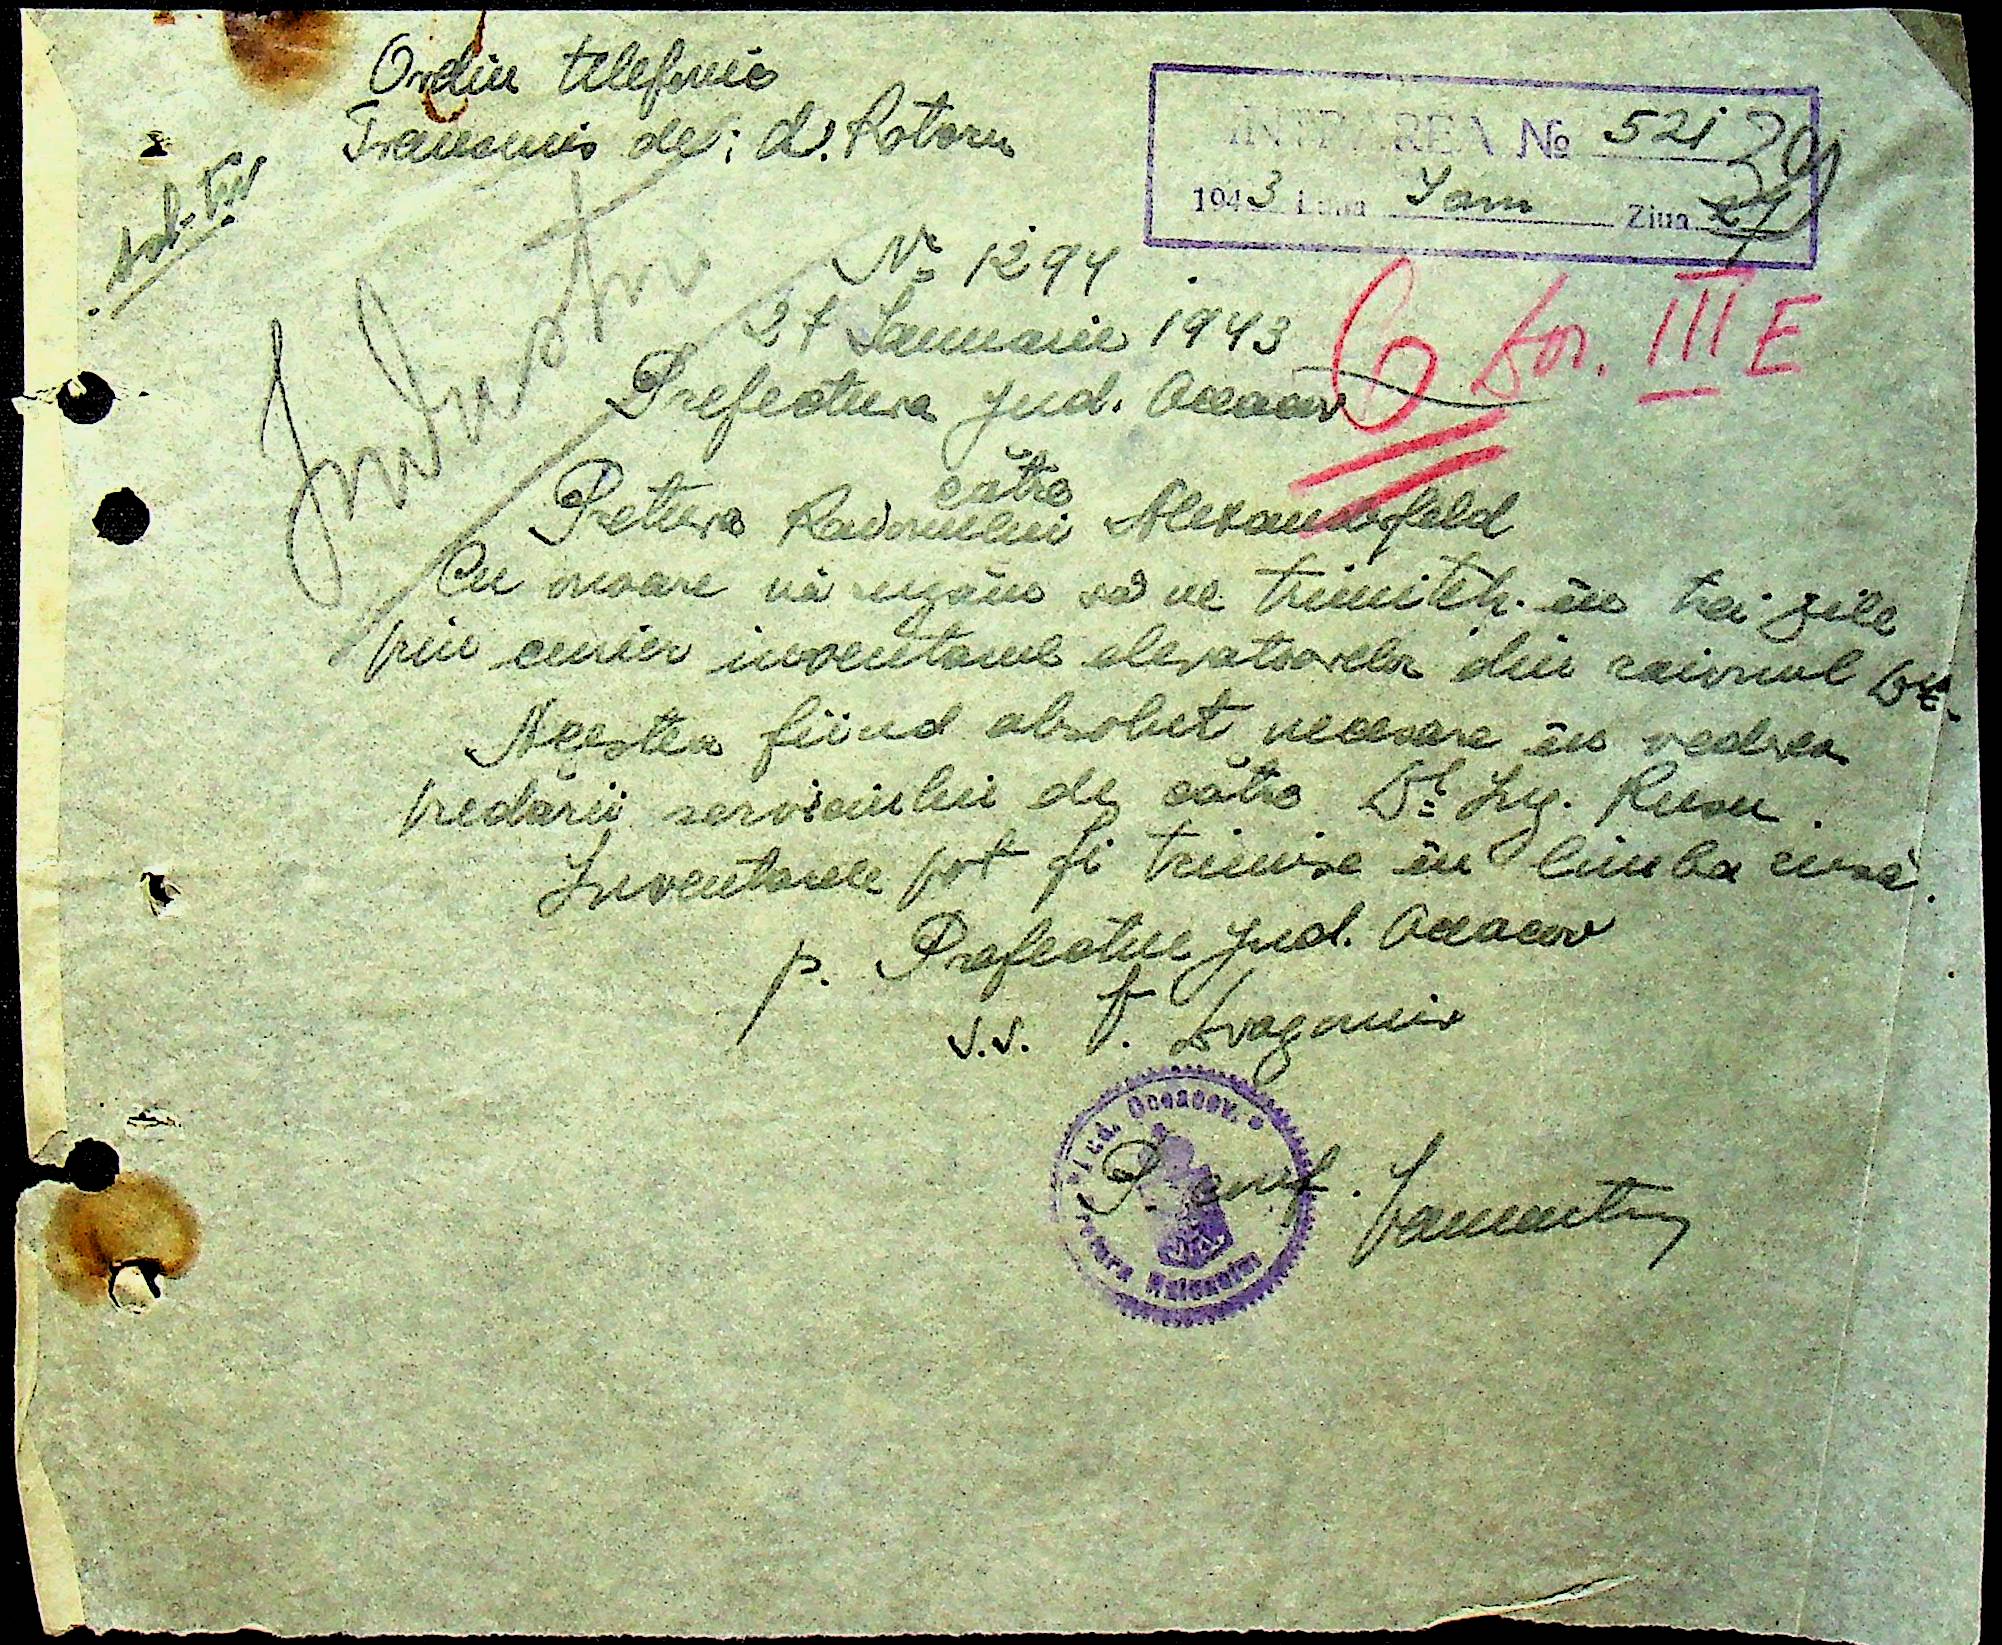 Ordin telefonic
Transmis de: d. Rotaru
INTRAREA № 521
1943 Luna Ian Ziua 27
Industr
№ 1294
27 Ianuarie 1943
6 Dos. III E
Prefectura jud. Oceacov
către
Pretura Raionului Alexanderfeld
Cu onoare vă rugăm să ne trimiteți în trei zile
prin curier inventarul elevatoarelor din raionul Dv.
Acestea fiind absolut necesare în vederea
predării serviciului de către Dl. Ing. Rusu.
Inventarele pot fi trimise în limba rusă.
p. Prefectul jud. Oceacov
s.s. F. Dragomir
Jud. Oceacov.
P. conf.
Pretura Raionului